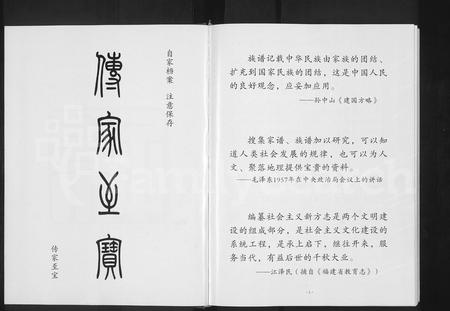 自家档案 注意保存
傳家至寶
传家至宝
族谱记载中华民族由家族的团结、
扩充到国家民族的团结,这是中国人民
的良好观念,应妥加应用。
——孙中山《建国方略》
搜集家谱、族谱加以研究,可以知
道人类社会发展的规律,也可以为人
文、聚落地理提供宝贵的资料。
——毛泽东1957年在中央政治局会议上的讲话
编纂社会主义新方志是两个文明建
设的组成部分,是社会主义文化建设的
系统工程,是承上启下,继往开来,服
务当代,有益后世的千秋大业。
——江泽民(摘自《福建省教育志》)